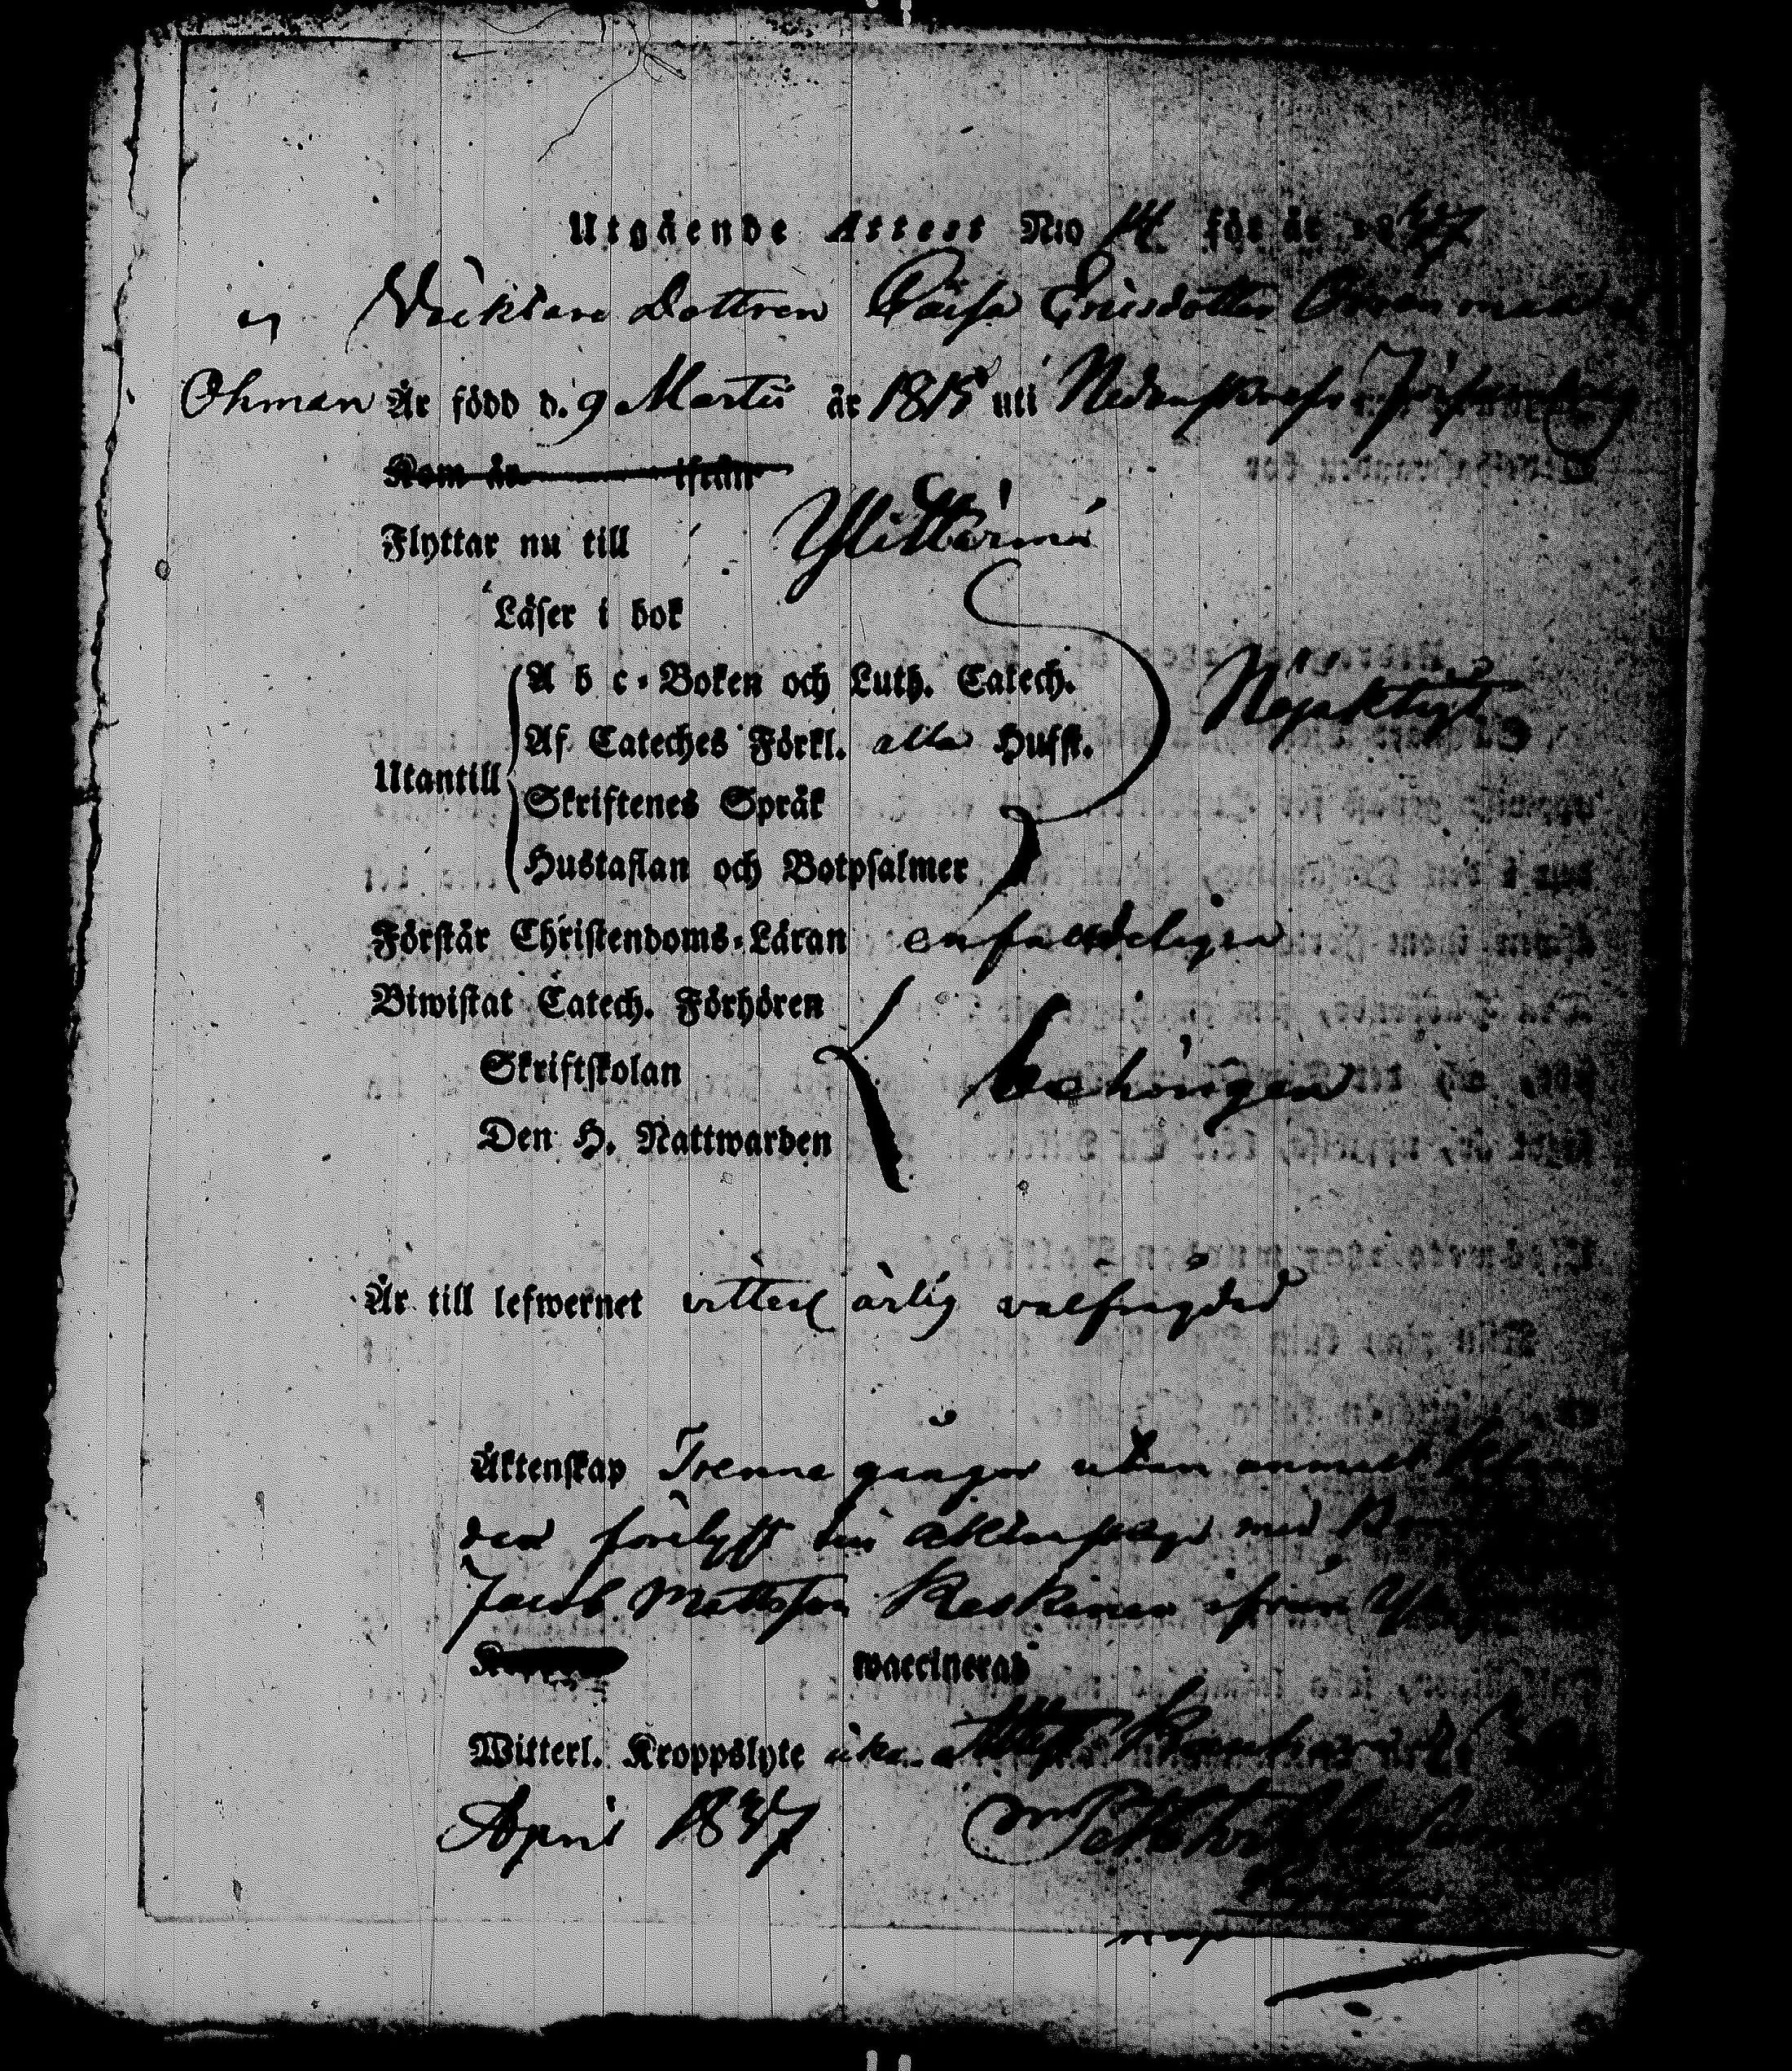 Utgående Attest N:o 14 för år 1837
Dotteren Caisa Ericsdotter
Öhman Är född d. 9 Martii år 1815 uti
Kom år ifrån
Flyttar nu till Ylitårnå
Läser i bok
A b c-Boken och Luth. Catech. Nöjaktigt
Af Cateches Förkl. alla Hufst.
Utantill
Skriftenes Språk
Hustaflan och Botpsalmer
Förstår Christendoms-Läran enfaldeligen
Biwistat Catech. Förhören
Skriftskolan behörigen
Den H. Nattwarden
Är till lefwernet vitterl ärlig välfrägdad
Äktenskap Trenne gånger utan anmält
den förelyst till äktenskap med
Jacob Mattsson Keskinen ifrån
waccinerad
Witterl. Kroppslyte icke
April 1837